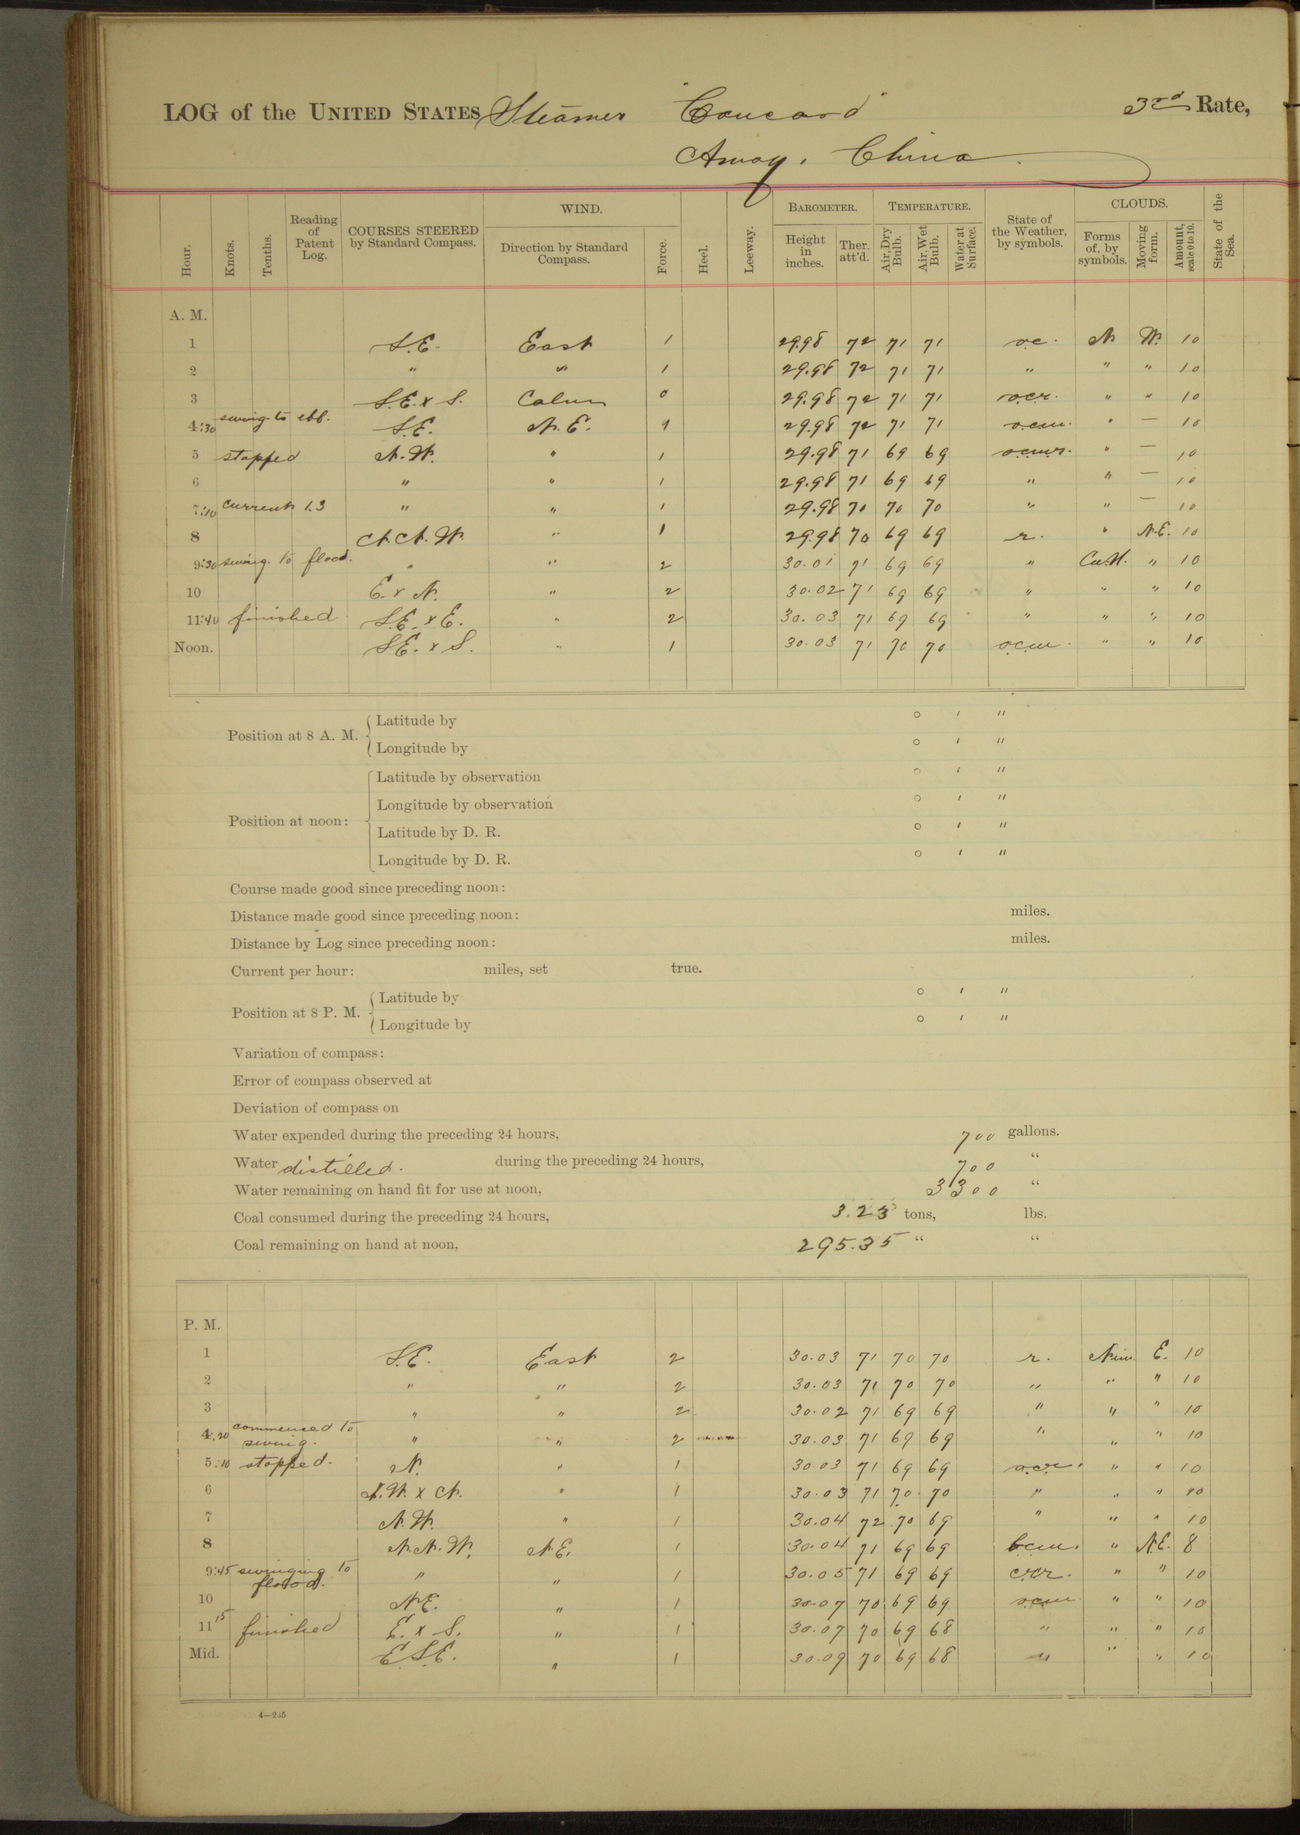 LOG of the UNITED STATES Steamer "Concord" 3rd Rate,
Amoy, China.
Hour. Knots. Tenths. Reading of Patent Log. COURSES STEERED by Standard Compass. WIND. Direction by Standard Compass. Force. Heel. Leeway. BAROMETER. Height in inches. Ther. att'd. TEMPERATURE. Air, Dry Bulb. Air, Wet Bulb. Water at Surface. State of the Weather, by symbols. CLOUDS. Forms of, by symbols. Moving form. Amount, scale 0 to 10. State of the Sea.
A. M.
1 S.E. East 1 29.98 72 71 71 o.c. N. W. 10
2 " " 1 29.98 72 71 71 " " " 10
3 S.E. x S. Calm 0 29.98 72 71 71 o.c.r. " " 10
4:30 swing to ebb. S.E. N.E. 1 29.98 72 71 71 o.c.m. " — 10
5 stopped N.W. " 1 29.98 71 69 69 o.c.m.r. " — 10
6 " " 1 29.98 71 69 69 " " — 10
7:10 current 1.3 " " 1 29.98 70 70 70 " " — 10
8 N.N.W. " 1 29.98 70 69 69 r. " N.E. 10
9:30 swing. to flood. " " 2 30.01 71 69 69 " Cu.N. " 10
10 E. x N. " 2 30.02 71 69 69 " " " 10
11:40 finished S.E. x E. " 2 30.03 71 69 69 " " " 10
Noon. S.E. x S. " 1 30.03 71 70 70 o.c.m. " " 10
Position at 8 A. M. Latitude by ° ' "
Longitude by ° ' "
Position at noon: Latitude by observation ° ' "
Longitude by observation ° ' "
Latitude by D. R. ° ' "
Longitude by D. R. ° ' "
Course made good since preceding noon:
Distance made good since preceding noon: miles.
Distance by Log since preceding noon: miles.
Current per hour: miles, set true.
Position at 8 P. M. Latitude by ° ' "
Longitude by ° ' "
Variation of compass:
Error of compass observed at
Deviation of compass on
Water expended during the preceding 24 hours, 700 gallons.
Water distilled. during the preceding 24 hours, 700 "
Water remaining on hand fit for use at noon, 3300 "
Coal consumed during the preceding 24 hours, 3.23 tons, lbs.
Coal remaining on hand at noon, 295.35 " "
P. M.
1 S.E. East 2 30.03 71 70 70 r. Nim. E. 10
2 " " 2 30.03 71 70 70 " " " 10
3 " " 2 30.02 71 69 69 " " " 10
4.20 commenced to swing. " " 2 30.03 71 69 69 " " " 10
5:10 stopped. N. " 1 30.03 71 69 69 o.c.r. " " 10
6 N.W. x N. " 1 30.03 71 70 70 " " " 10
7 N.W. " 1 30.04 72 70 69 " " " 10
8 N.N.W. N.E. 1 30.04 71 69 69 b.c.m. " N.E. 8
9:45 swinging to flood. " " 1 30.05 71 69 69 c.r. " " 10
10 N.E. " 1 30.07 70 69 69 o.c.m. " " 10
11 15 finished E. x S. " 1 30.07 70 69 68 " " " 10
Mid. E.S.E. " 1 30.09 70 69 68 " " " 10
4—235